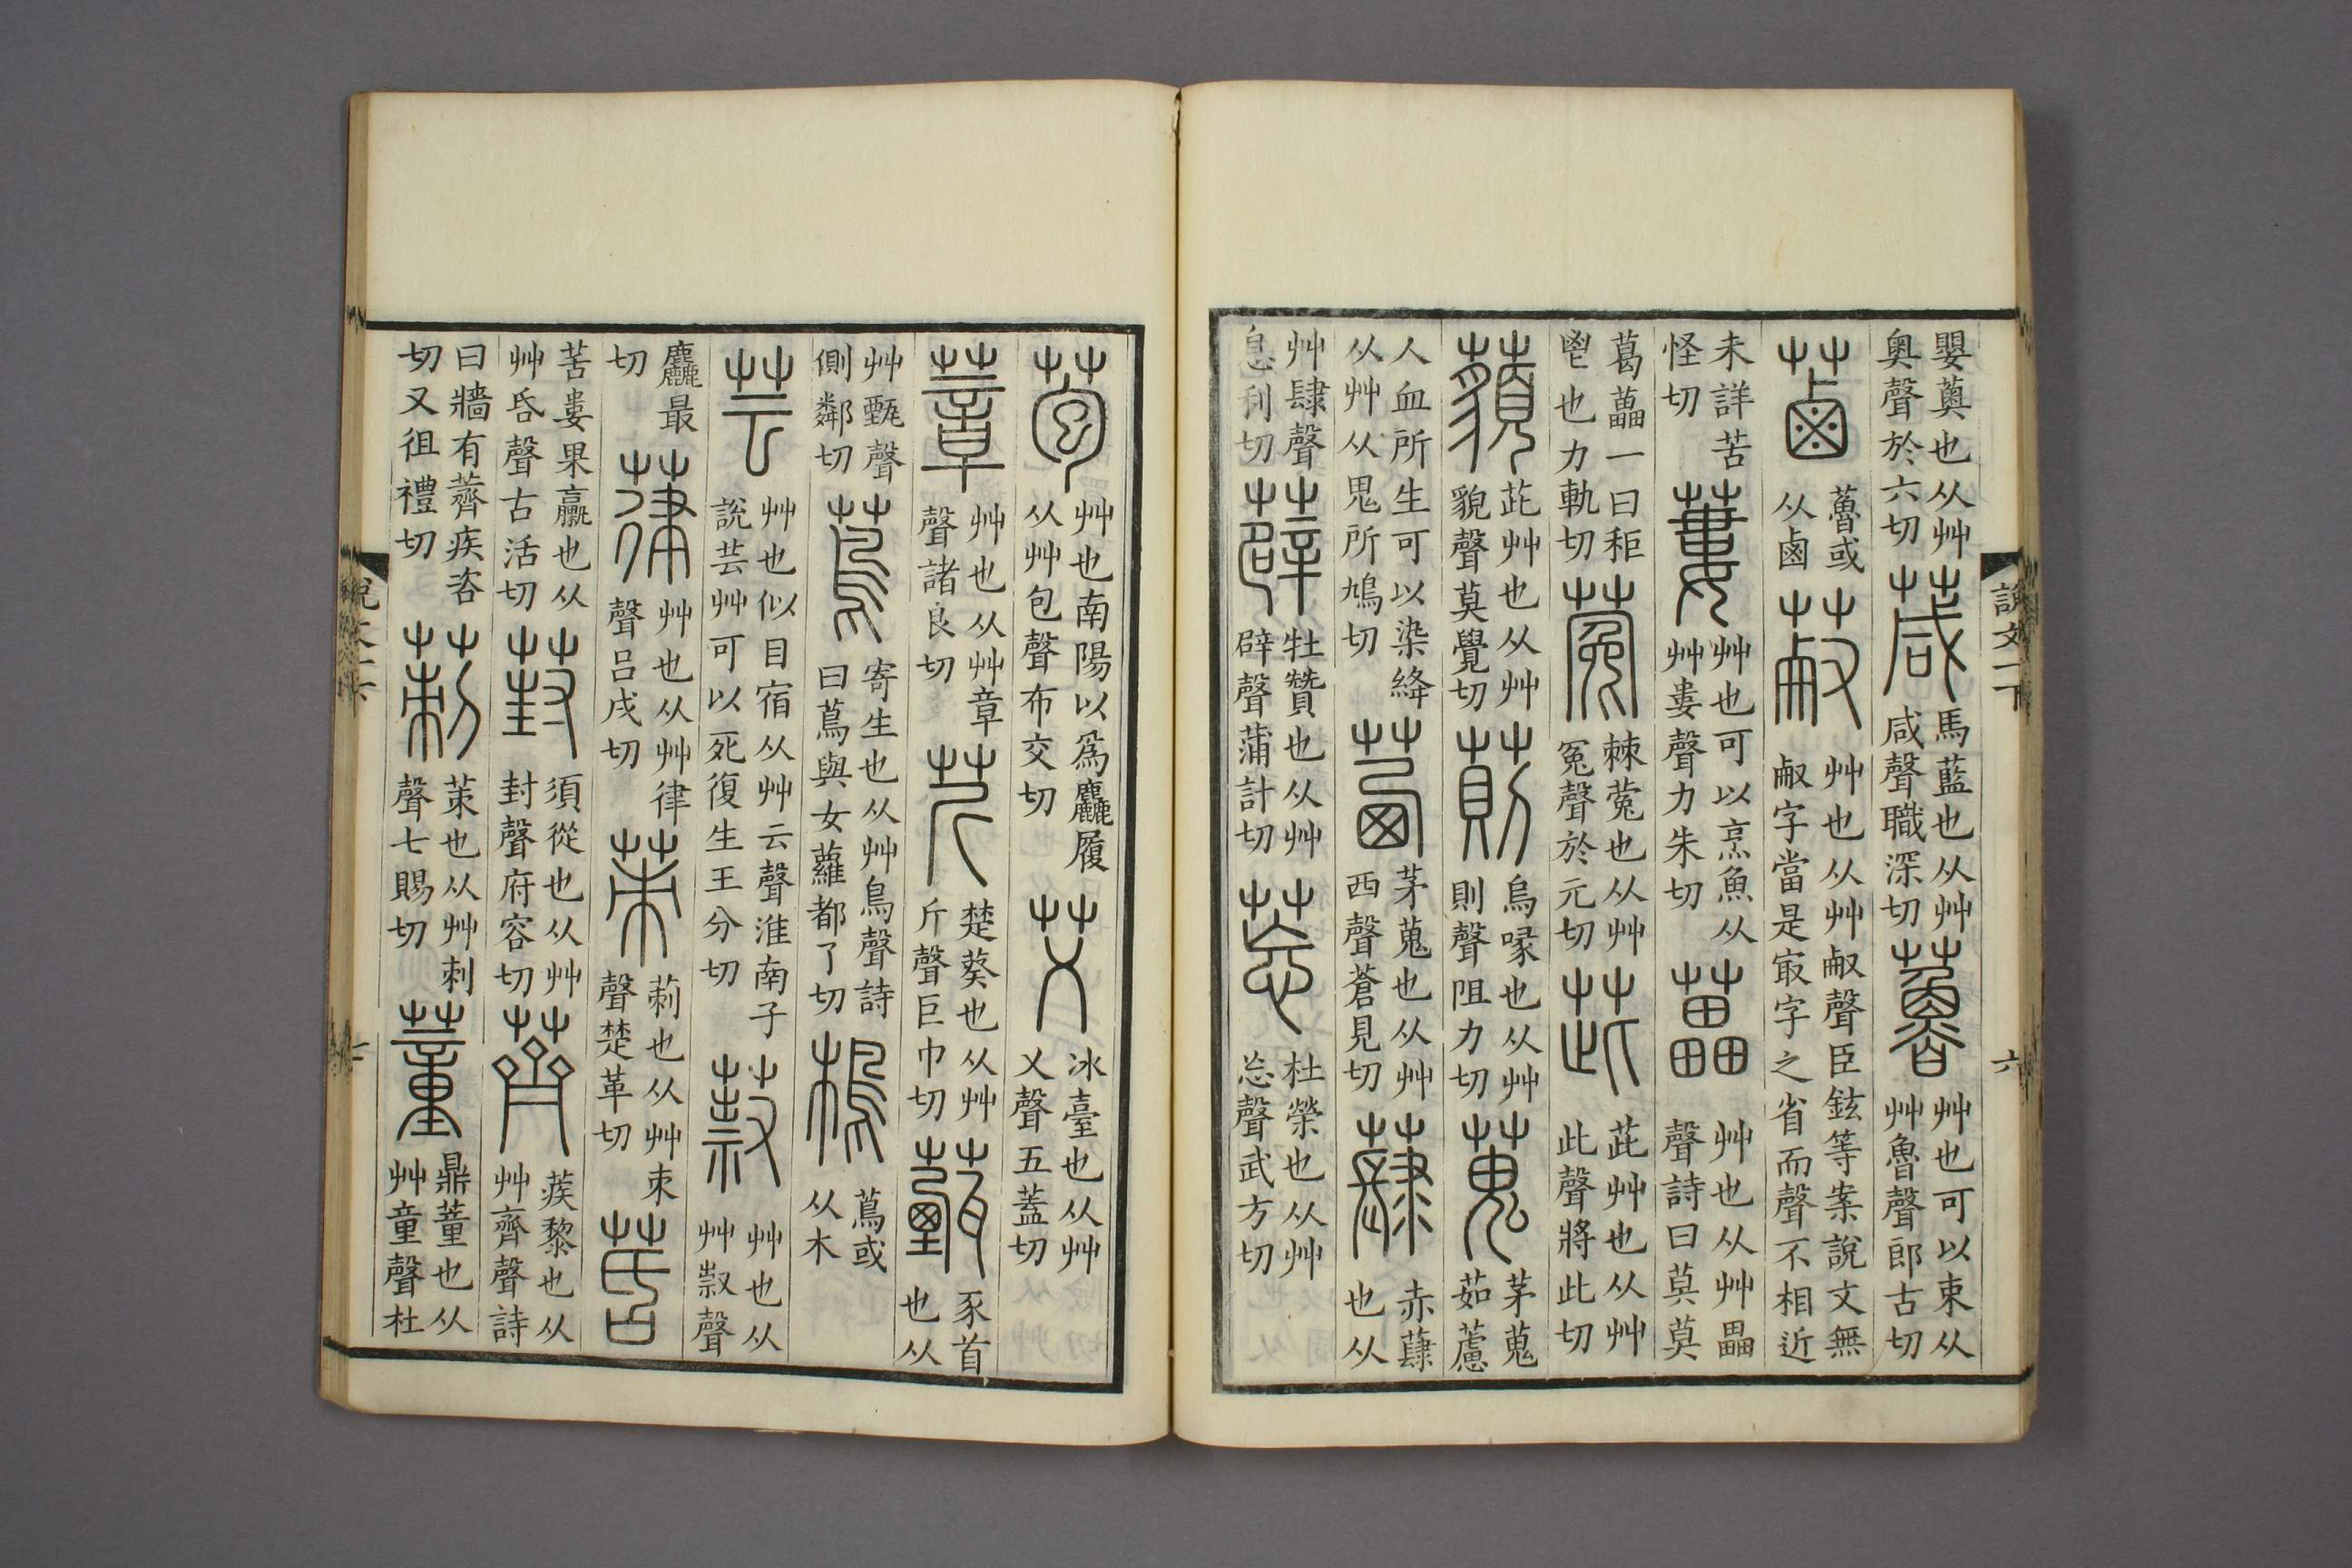 嬰薁也从艸奥聲於六切葴馬藍也从艸咸聲職深切𧀦艸也可以束从艸魯聲郎古切
蓾𧀦或从鹵𦳋艸也从艸㕟聲臣鉉等案說文無㕟字當是㝡字之省而聲不相近
未詳苦怪切蔞艸也可以烹魚从艸婁聲力朱切藟艸也从艸畾聲詩曰莫莫
葛藟一曰秬鬯也力軌切蒬棘蒬也从艸冤聲於元切茈茈艸也从艸此聲將此切
藐茈艸也从艸貌聲莫覺切萴烏喙也从艸則聲阻力切蒐茅蒐茹藘
人血所生可以染絳从艸从鬼所鳩切茜茅蒐也从艸西聲蒼見切蕼赤蕼也从
艸肆聲息利切薜牡贊也从艸辟聲蒲計切莣杜榮也从艸忘聲武方切
說文一下 六
苞艸也南陽以爲麤履从艸包聲布交切艾冰臺也从艸乂聲五蓋切
蔁艸也从艸章聲諸良切芹楚葵也从艸斤聲巨巾切薽豕首也从
艸甄聲側鄰切蔦寄生也从艸鳥聲詩曰蔦與女蘿都了切樢蔦或从木
芸艸也似目宿从艸云聲淮南子說芸艸可以死復生王分切艸也从艸聲
麤最切葎艸也从艸律聲呂戌切茦莿也从艸朿聲楚革切䒷
苦婁果蠃也从艸昏聲古活切葑須從也从艸封聲府容切薺蒺黎也从艸齊聲詩
曰牆有薺疾咨切又徂禮切莿茦也从艸刺聲七賜切蕫鼎蕫也从艸童聲杜
說文一下 七